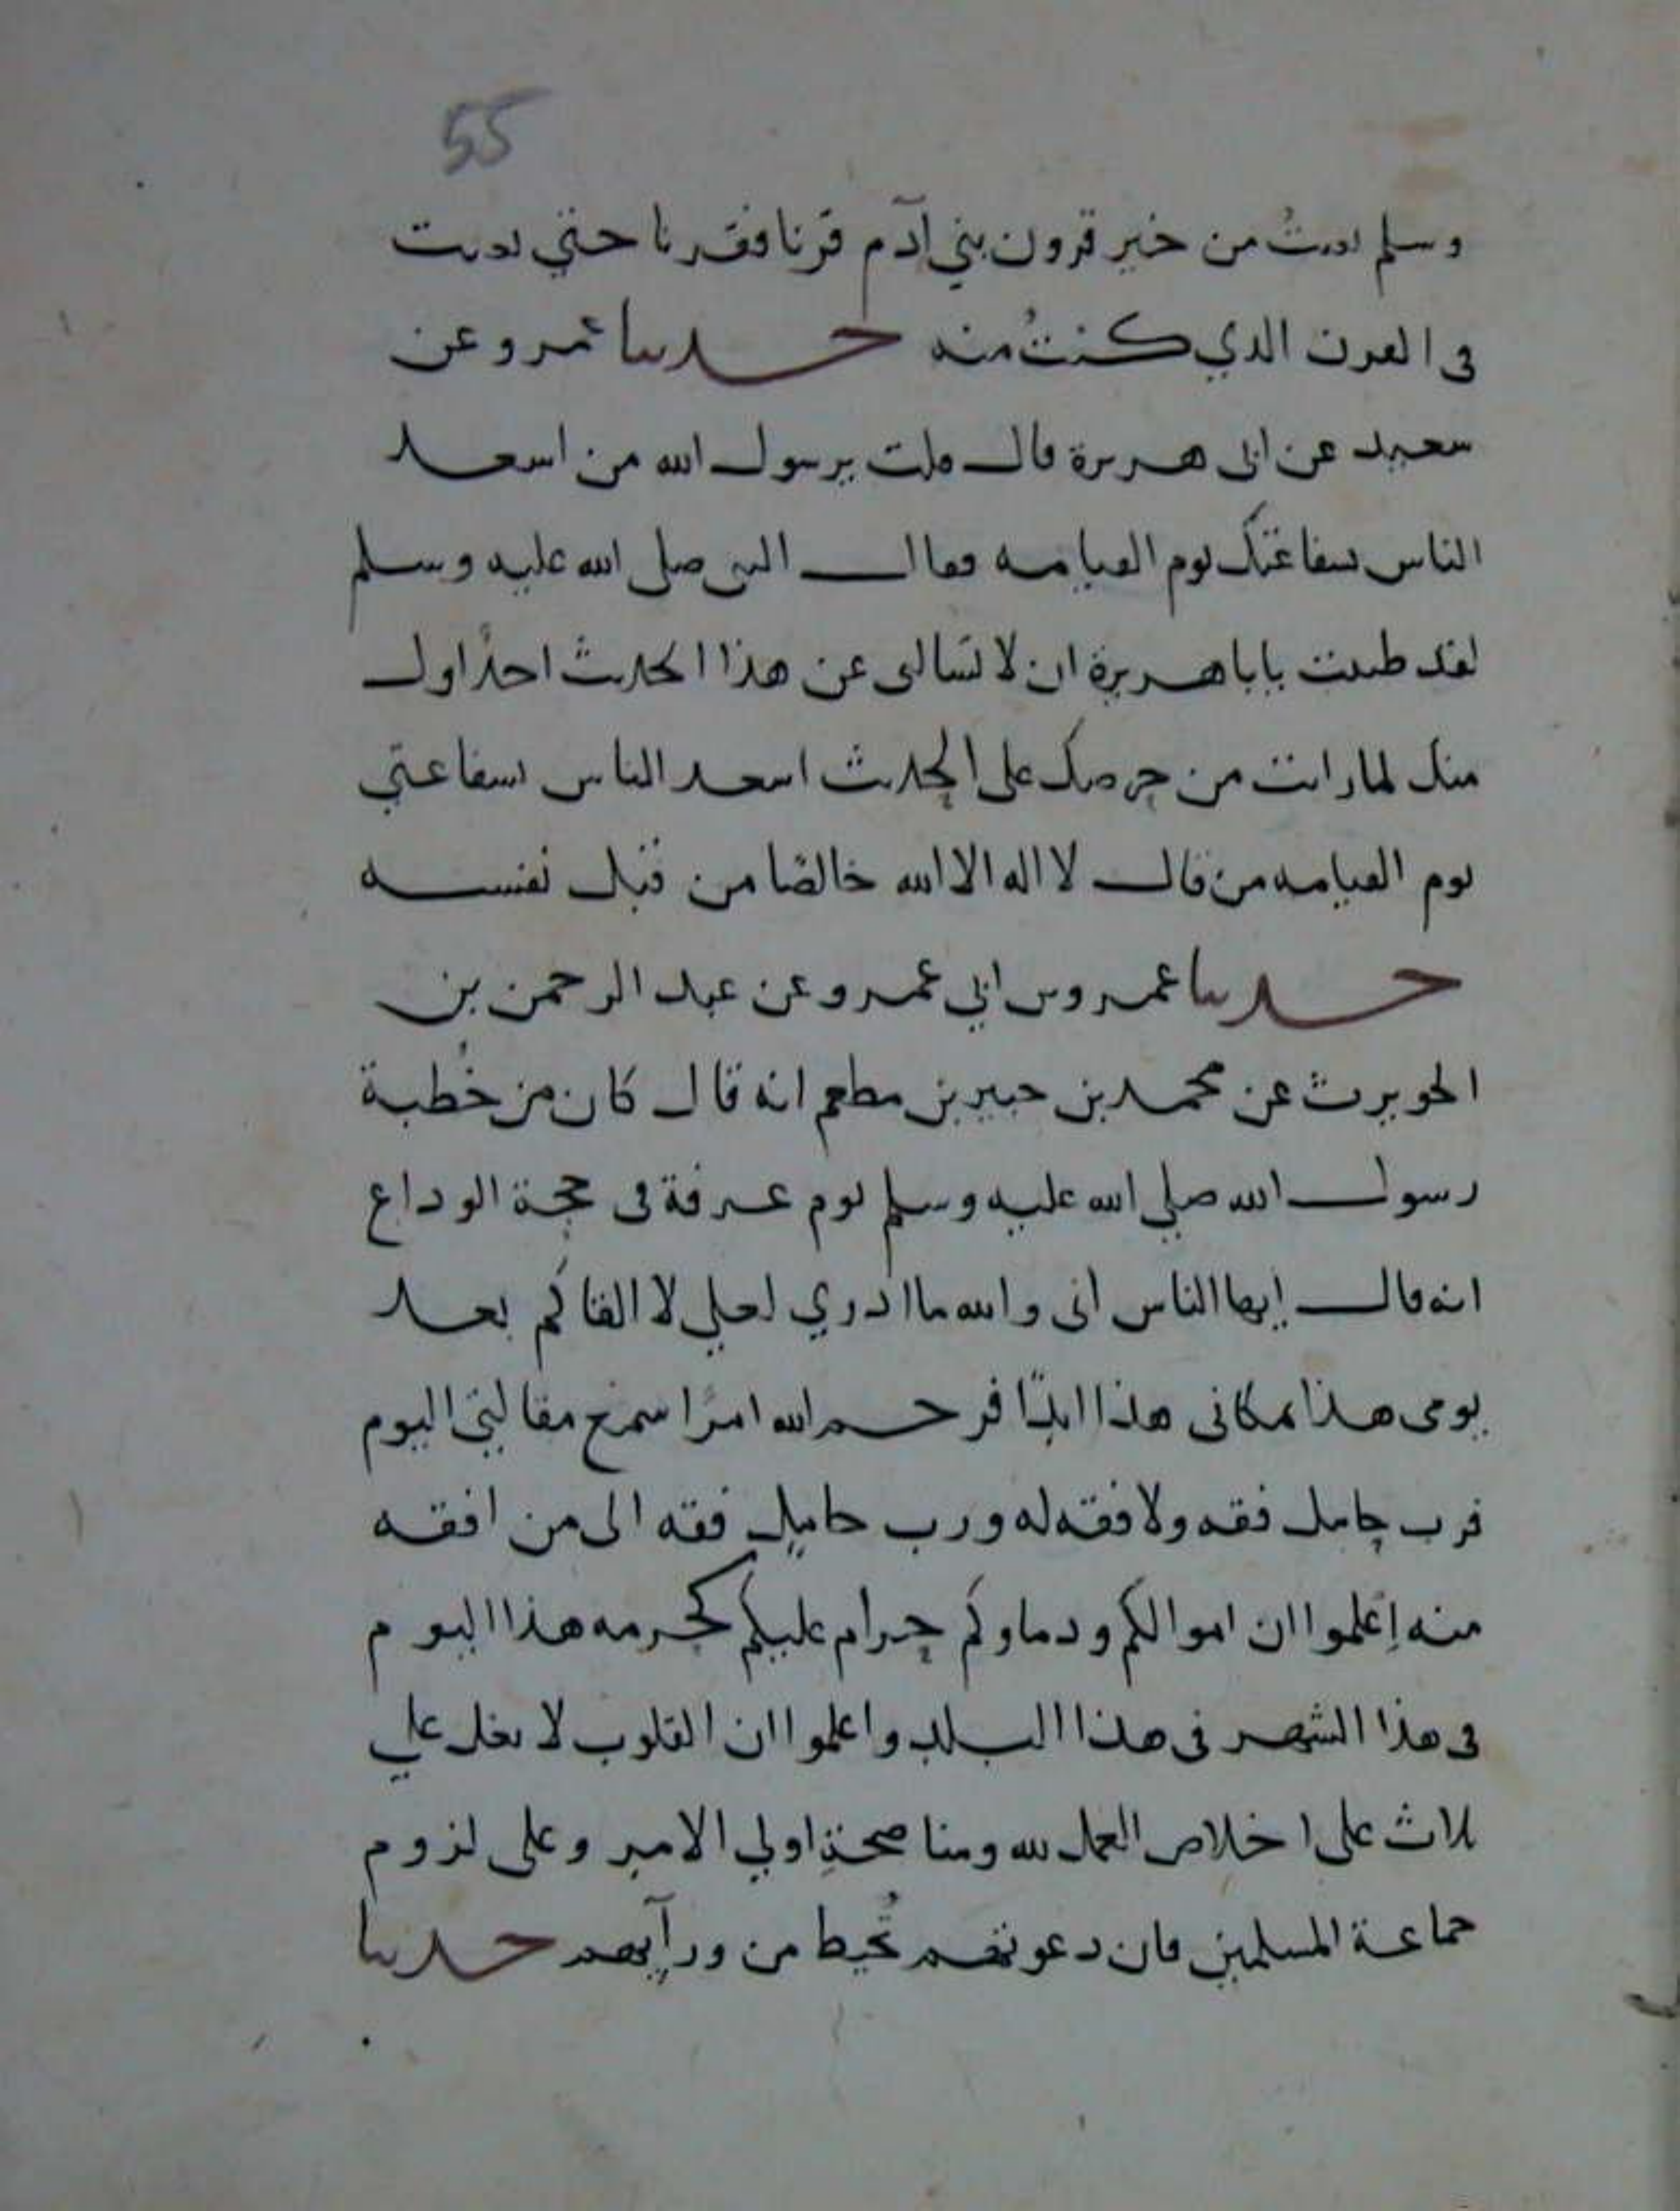 55
وسلم بعثتُ من خير قرون بني آدم قرنا فقرنا حتي بعثت
في القرن الذي كنتُ منه حدثنا عمرو عن
سعيد عن ابي هريرة قال قلت يرسول الله من اسعد
الناس بشفاعتك يوم القيامه فقال النبي صلى الله عليه وسلم
لقد ظننت ياباهريرة ان لا تسالني عن هذا الحديث احدًا اول
منك لما رايت من حرصك على الحديث اسعد الناس بشفاعتي
يوم القيامه من قال لا اله الا الله خالصًا من قبل نفسه
حدثنا عمرو بن ابي عمرو عن عبد الرحمن بن
الحويرث عن محمد بن جبير بن مطعم انه قال كان من خُطبة
رسول الله صلي الله عليه وسلم يوم عرفة في حجة الوداع
انه قال إيها الناس اني والله ما ادري لعلي لا القاكم بعد
يومى هذا مكانى هذا ابدًا فرحم الله امرًا سمع مقالتي اليوم
فرب حامل فقه ولا فقه له ورب حامل فقه الى من افقه
منه إعلموا ان اموالكم ودماوكم حرام عليكم كحرمه هذا اليوم
في هذا الشهر في هذا البلد واعلموا ان القلوب لا تغل علي
ثلاث على اخلاص العمل لله ومناصحةِ اولي الامر وعلى لزوم
جماعة المسلمين فان دعوتهم تُحيط من ورآيهم حدثنا